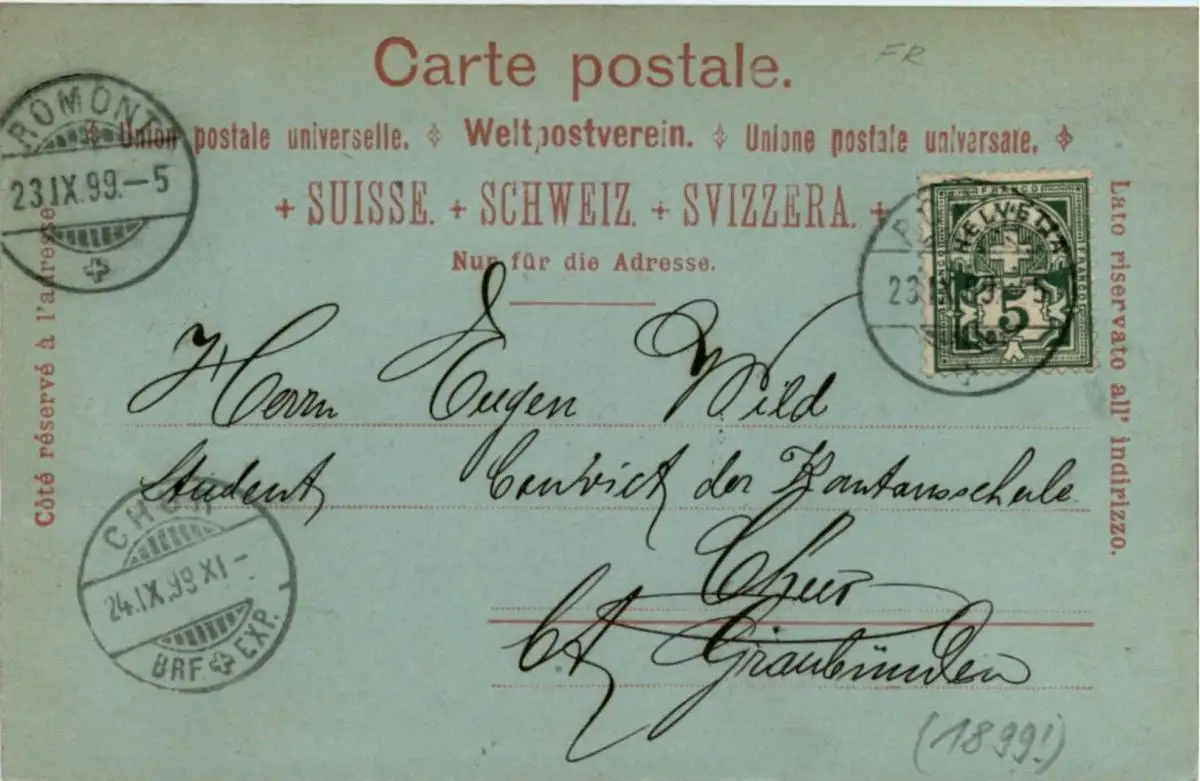 Carte postale.
FR
Union postale universelle. Weltpostverein. Unione postale universale.
+ SUISSE. + SCHWEIZ. + SVIZZERA. +
Nur für die Adresse.
Côté réservé à l'adresse
Lato riservato all' indirizzo.
ROMONT
23.IX.99.-5
FRANCO
HELVETIA
FRANCO
FRANCO
5
23.IX.99.-5
Herrn Eugen Wild
Student Convict der Kantonsschule
Chur
Ct Graubünden
CHUR
24.IX.99 XI-
BRF. EXP.
(1899!)